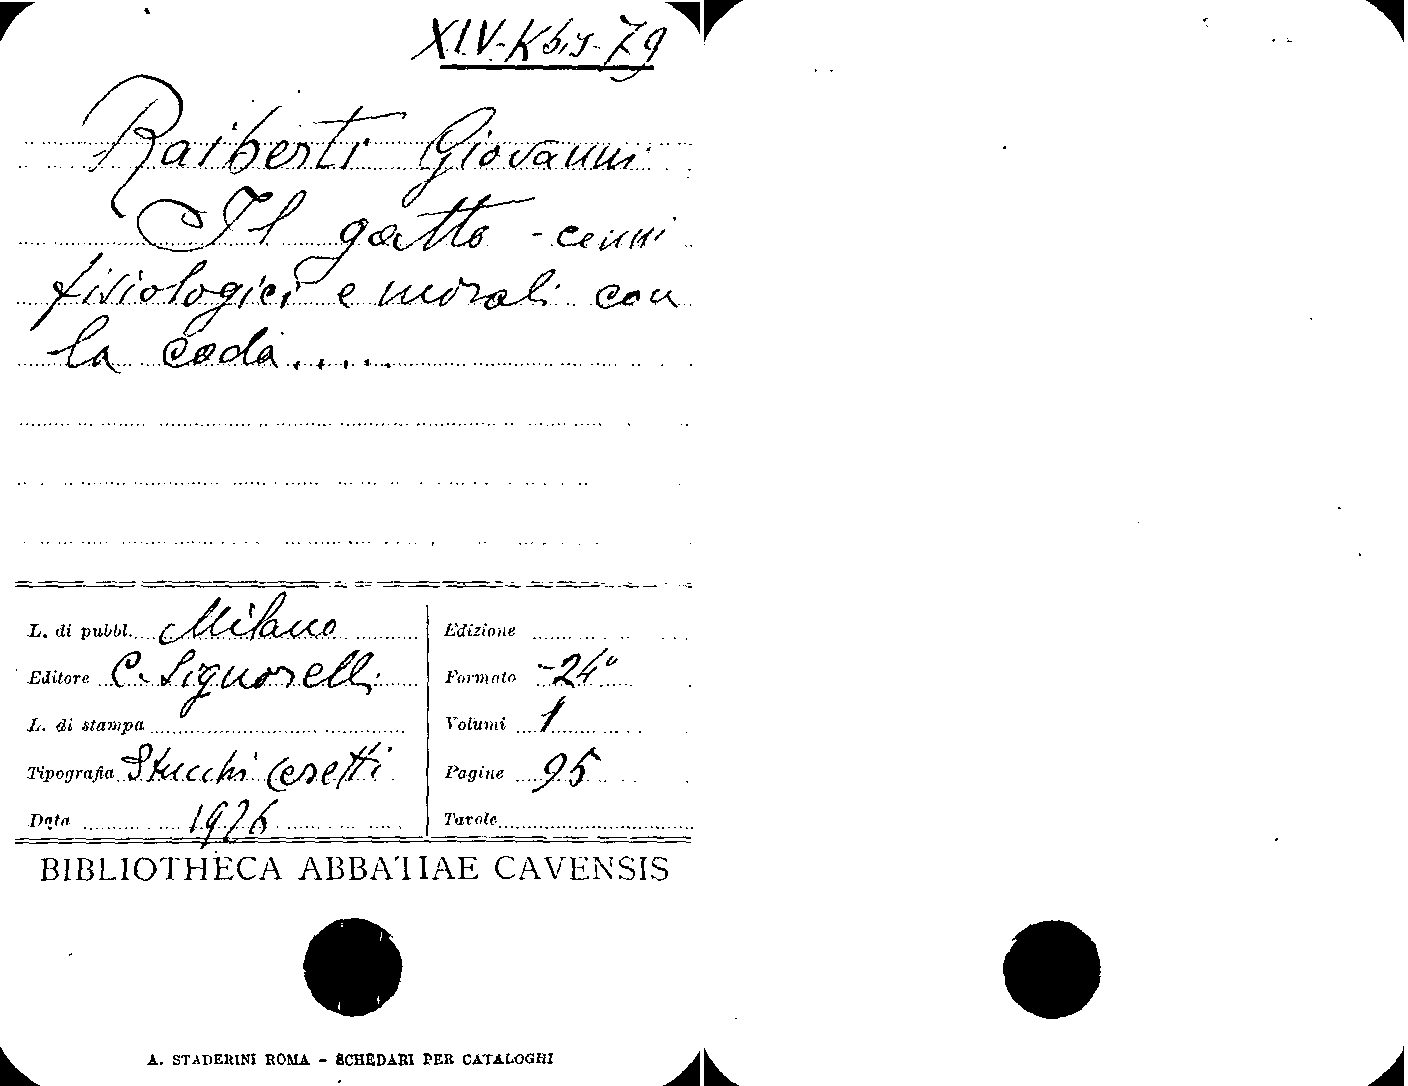 XIV-Kbis-79
Raiberti Giovanni
Il gatto - cenni
fisiologici e morali con
la coda.....
L. di pubbl. Milano
Editore C. Signorelli
L. di stampa
Tipografia Stucchi Ceretti
Data 1926
Edizione
Formato -24°
Volumi 1
Pagine 95
Tavole
BIBLIOTHECA ABBATIAE CAVENSIS
A. STADERINI ROMA - SCHEDARI PER CATALOGHI